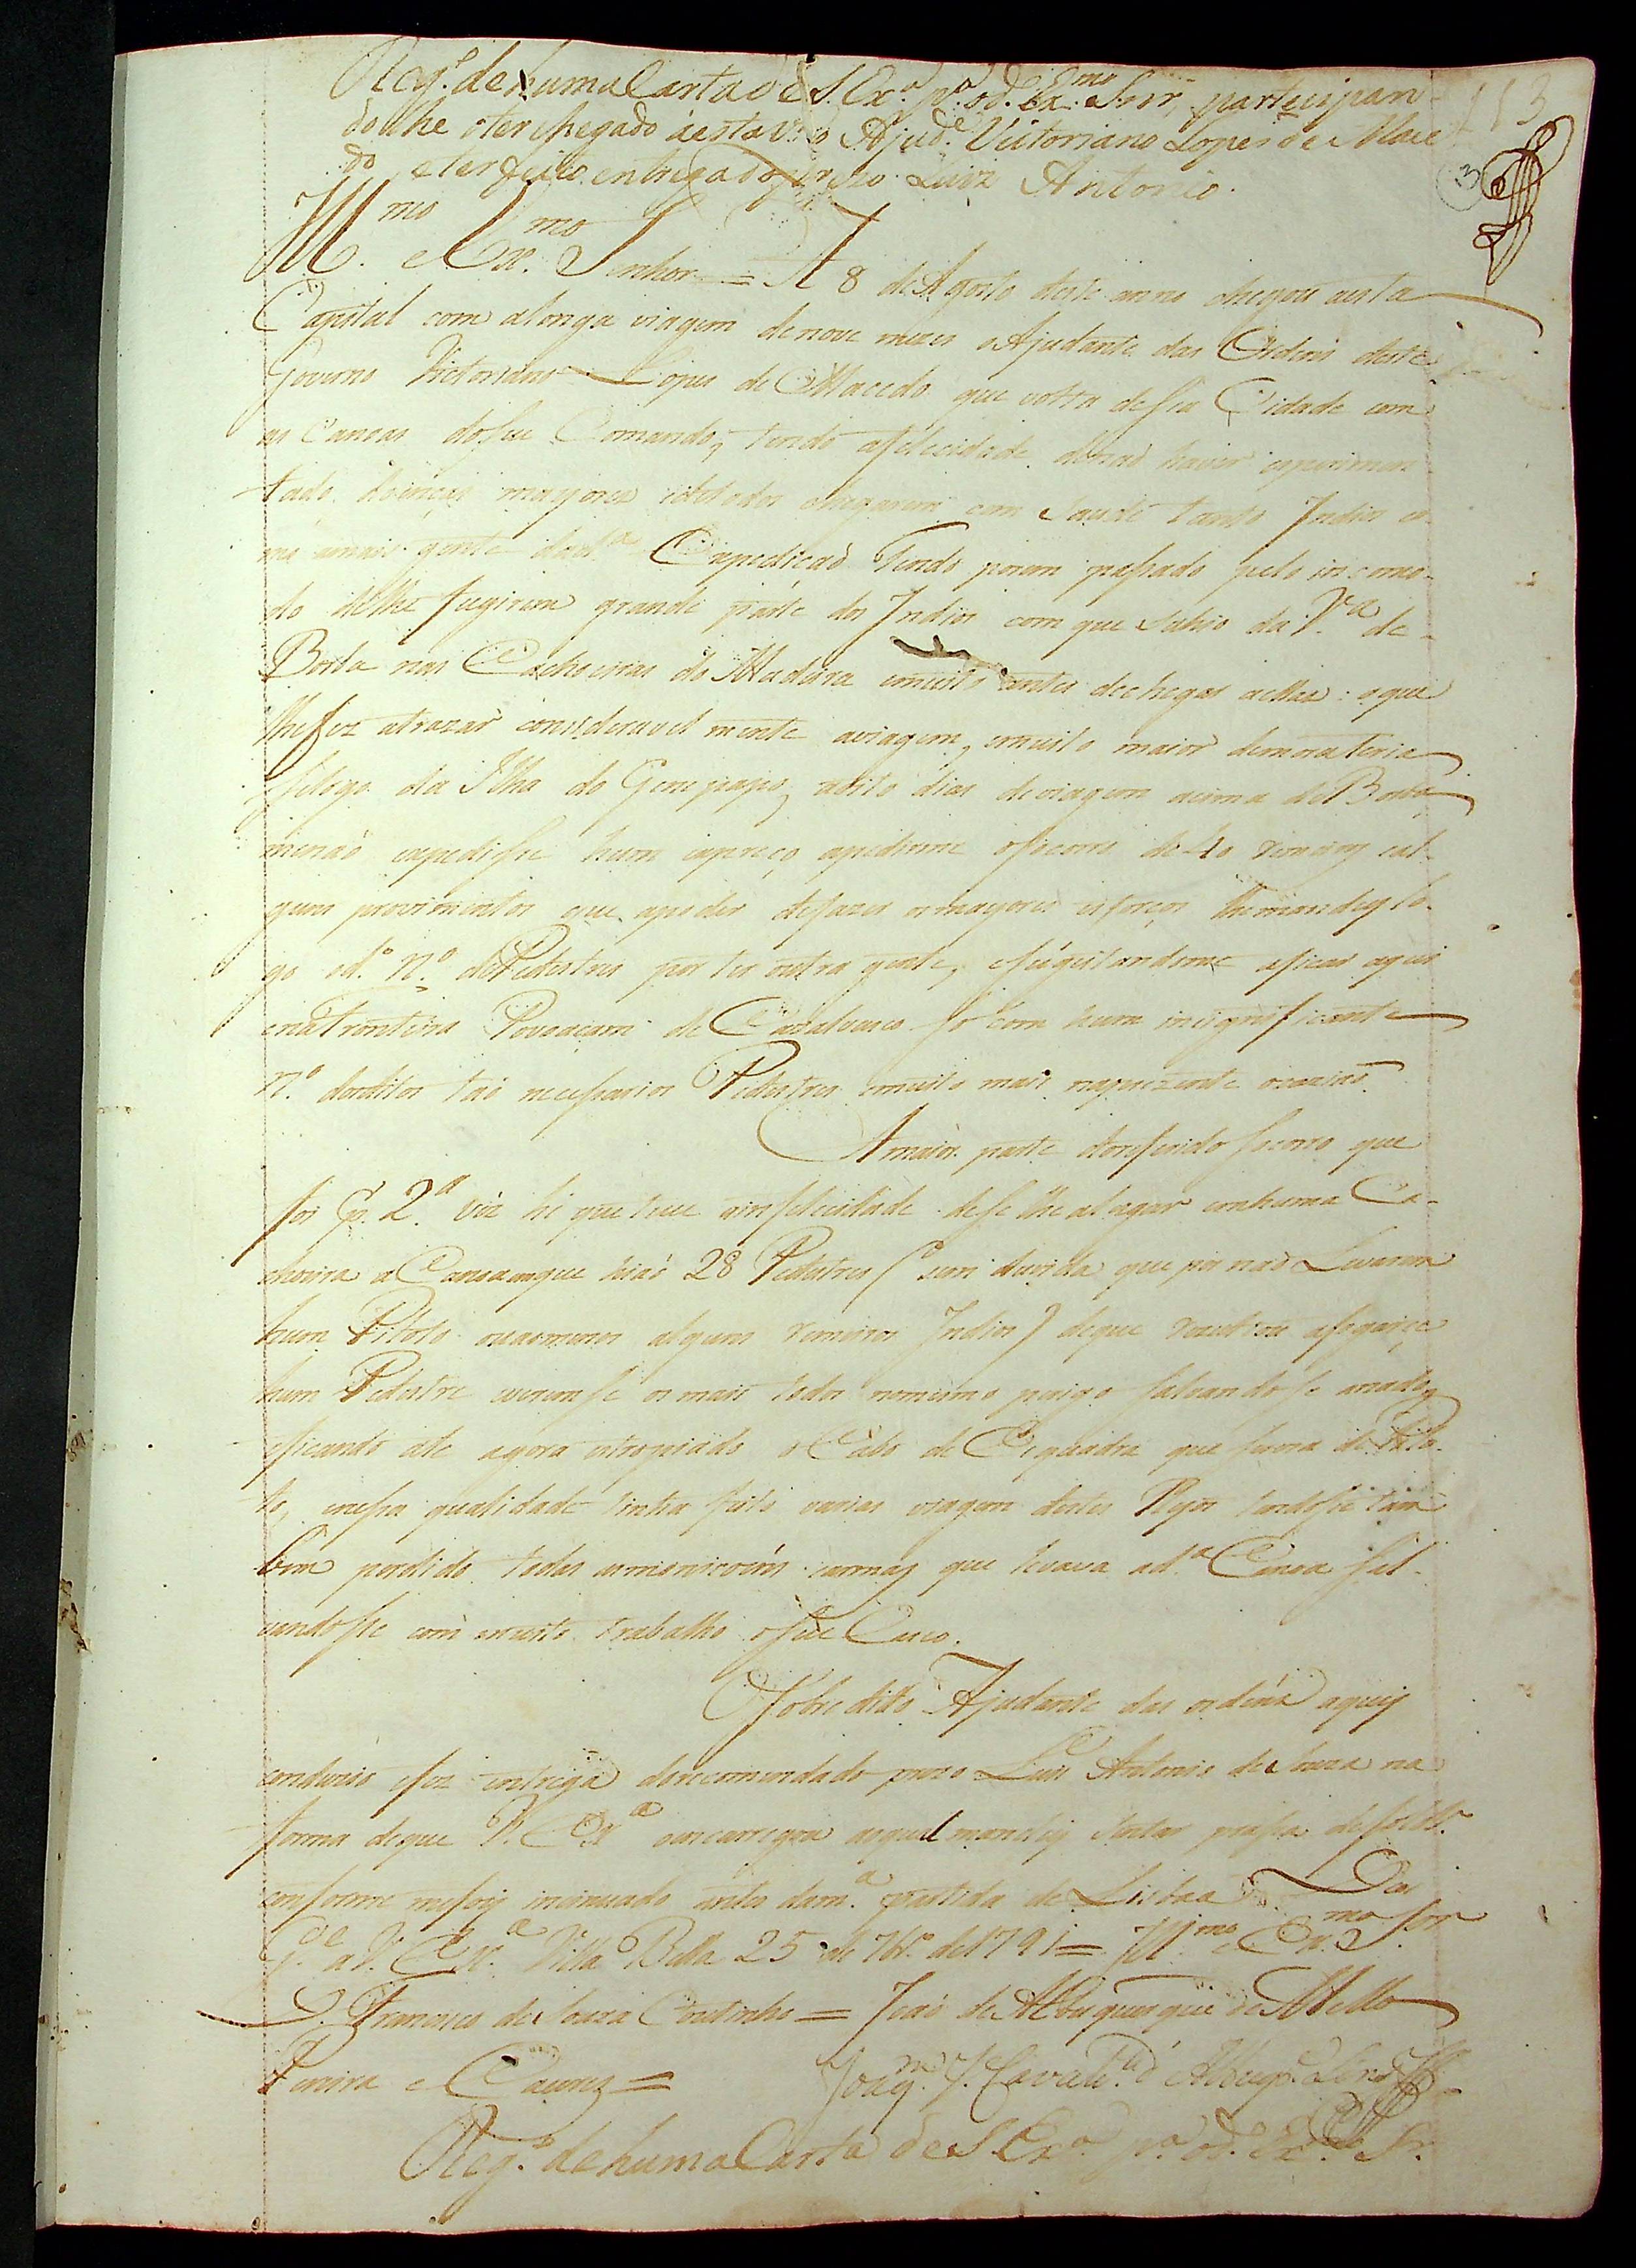 Reg.º de huma Carta de S. Ex.ª p.ª o d. Ex.mo Snr. partecipan-
153
dolhe o ter chegado a esta V.ª o Ajud.e Victoriano Lopes de Mace
do, e ter feito entrega do prezo Luiz Antonio.
3
Ill.mo e Ex.mo Senhor = A 8 de Agosto deste anno chegou a esta
Capital com a longa viagem de nove mezes o Ajudante das Ordens deste
Governo Victoriano Lopes de Macedo que volta dessa Cidade com
as Canoas do seu Comando, tendo a felecidade de naõ haver experimen
tado doenças mayores e de todos chegarem com saude tanto Indios co-
mo a mais gente da d.ª Expediçaõ Tendo porem passado pelo incomo-
do de lhe fugirem grande parte dos Indios com que sahio da V.ª de-
Borba nas Cachoeiras do Madeira e muito antes de chegar a ellas: o que
lhe fez atrazar consideravel mente a viagem, e muito maior demora teria
se logo da Ilha do Genipapo, a oito dias de viagem acima de Borba
me naõ expedisse hum expreço a pedirme o socorro de 40 remeiros e al-
guns provimentos que a poder de fazer os mayores esforços lhe mandey lo-
go o d.º N.º de Pedestres por ter outra gente, e sugeitandome a ficar aqui
e na Fronteira Povoaçam de Cazalvasco so com hum insignificante
N.º dos ditos taõ necessarios Pedestres e muito mais na prezente ocaziaõ.
A maior parte do referido socorro que
foi p.r 2.ª vez he que teve a infelecidade de se lhe alagar em huma Ca-
choeira a Canoa em que hiaõ 28 Pedestres (sem duvida que por naõ Levarem
hum Piloto ou ao menos alguns remeiros Indios) de que rezultou afogarçe
hum Pedestre e verem se os mais todos no mesmo perigo salvando se a nado,
e ficando ate agora estropiado o Cabo de Esquadra que servia de Pilo-
to, e nessa qualidade tinha feito varias viagens destes Rios tendosse tam
bem perdido todas as moniçoens e armas que levava a d.ª Canoa sal-
vandosse com muito trabalho o seu Casco.
O sobre dito Ajudante das ordens aqui
conduzio e fez entrega do recomendado prezo Luis Antonio de Souza na
forma de que V. Ex.ª o encarregou ao qual mandey sentar praça de sold.º
conforme me foy insinuado antes da m.ª partida de Lisboa Deos
g.de a V. Ex.ª Villa Bella 25 de 7br.º de 1791 = Ill.mo e Ex.mo Snor
D. Francisco de Souza Coutinho = Joaõ de Albuquerque de Mello
Pereira e Caceres = Joaq.m J. Cavalc.ti d'Albuq.e Lins
Reg.º de huma Carta de S. Ex.ª p.ª o d. Ex.mo Sr.